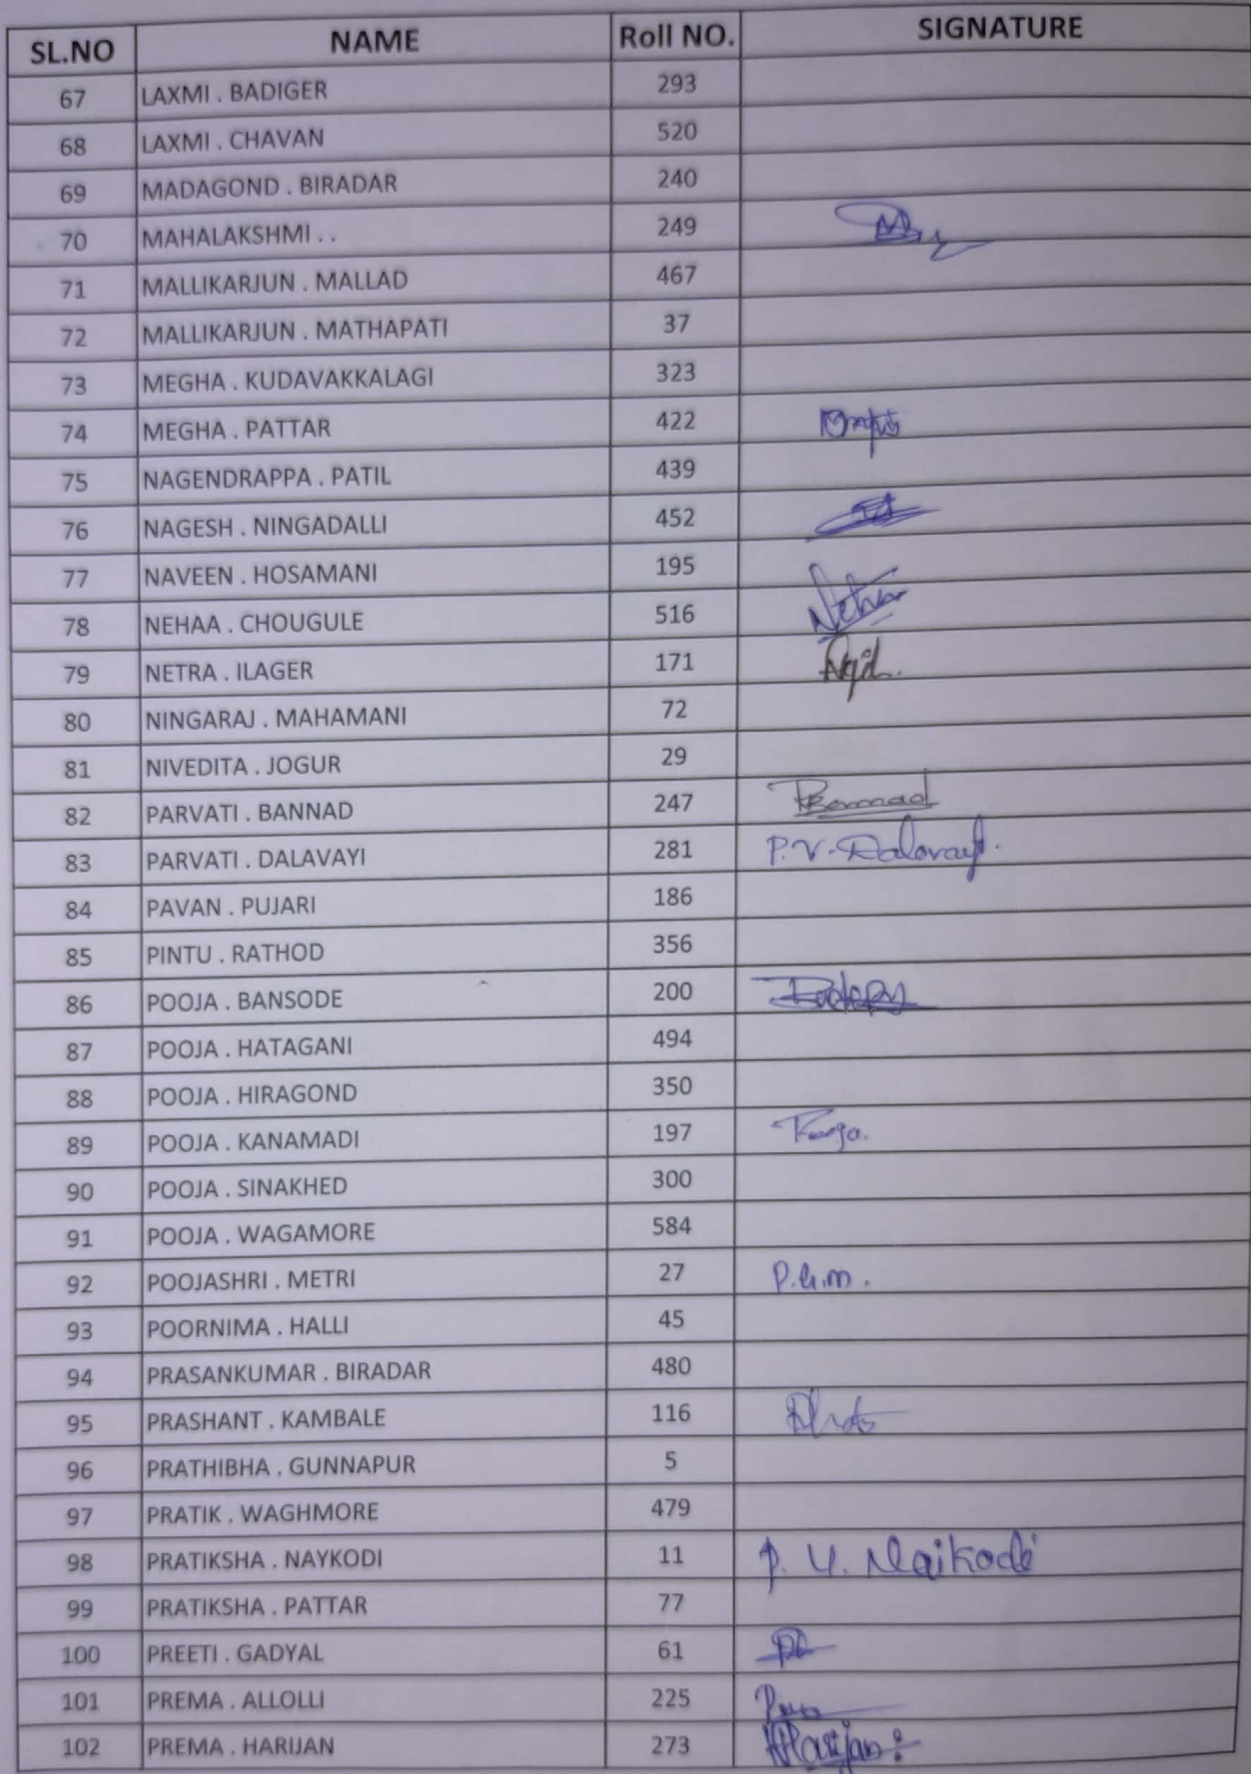 SL.NO NAME Roll NO. SIGNATURE
67 LAXMI . BADIGER 293
68 LAXMI . CHAVAN 520
69 MADAGOND . BIRADAR 240
70 MAHALAKSHMI . . 249
71 MALLIKARJUN . MALLAD 467
72 MALLIKARJUN . MATHAPATI 37
73 MEGHA . KUDAVAKKALAGI 323
74 MEGHA . PATTAR 422
75 NAGENDRAPPA . PATIL 439
76 NAGESH . NINGADALLI 452
77 NAVEEN . HOSAMANI 195
78 NEHAA . CHOUGULE 516 Neha
79 NETRA . ILAGER 171
80 NINGARAJ . MAHAMANI 72
81 NIVEDITA . JOGUR 29
82 PARVATI . BANNAD 247 PBannad
83 PARVATI . DALAVAYI 281 P.V. Dalavayi.
84 PAVAN . PUJARI 186
85 PINTU . RATHOD 356
86 POOJA . BANSODE 200
87 POOJA . HATAGANI 494
88 POOJA . HIRAGOND 350
89 POOJA . KANAMADI 197 Pooja.
90 POOJA . SINAKHED 300
91 POOJA . WAGAMORE 584
92 POOJASHRI . METRI 27 P.G.M.
93 POORNIMA . HALLI 45
94 PRASANKUMAR . BIRADAR 480
95 PRASHANT . KAMBALE 116
96 PRATHIBHA . GUNNAPUR 5
97 PRATIK . WAGHMORE 479
98 PRATIKSHA . NAYKODI 11 P. Y. Naikodi
99 PRATIKSHA . PATTAR 77
100 PREETI . GADYAL 61
101 PREMA . ALLOLLI 225
102 PREMA . HARIJAN 273 Harijan